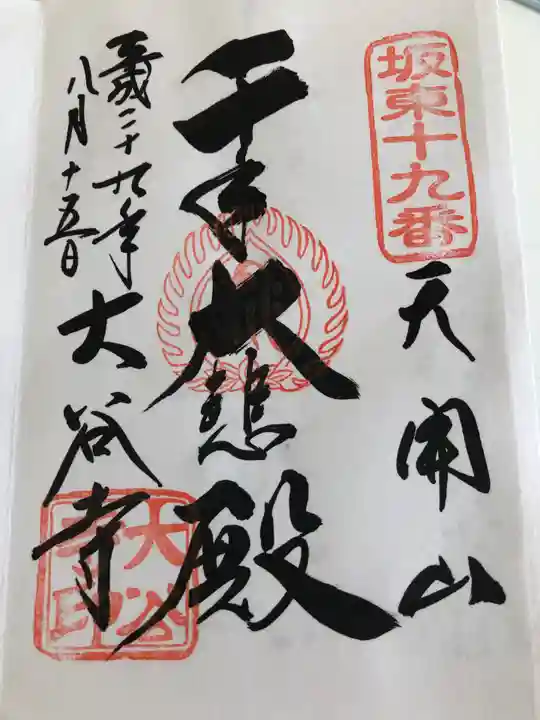 坂東十九番
天開山
千手大悲殿
平成二十九年
八月十五日
大谷寺
大谷
寺印